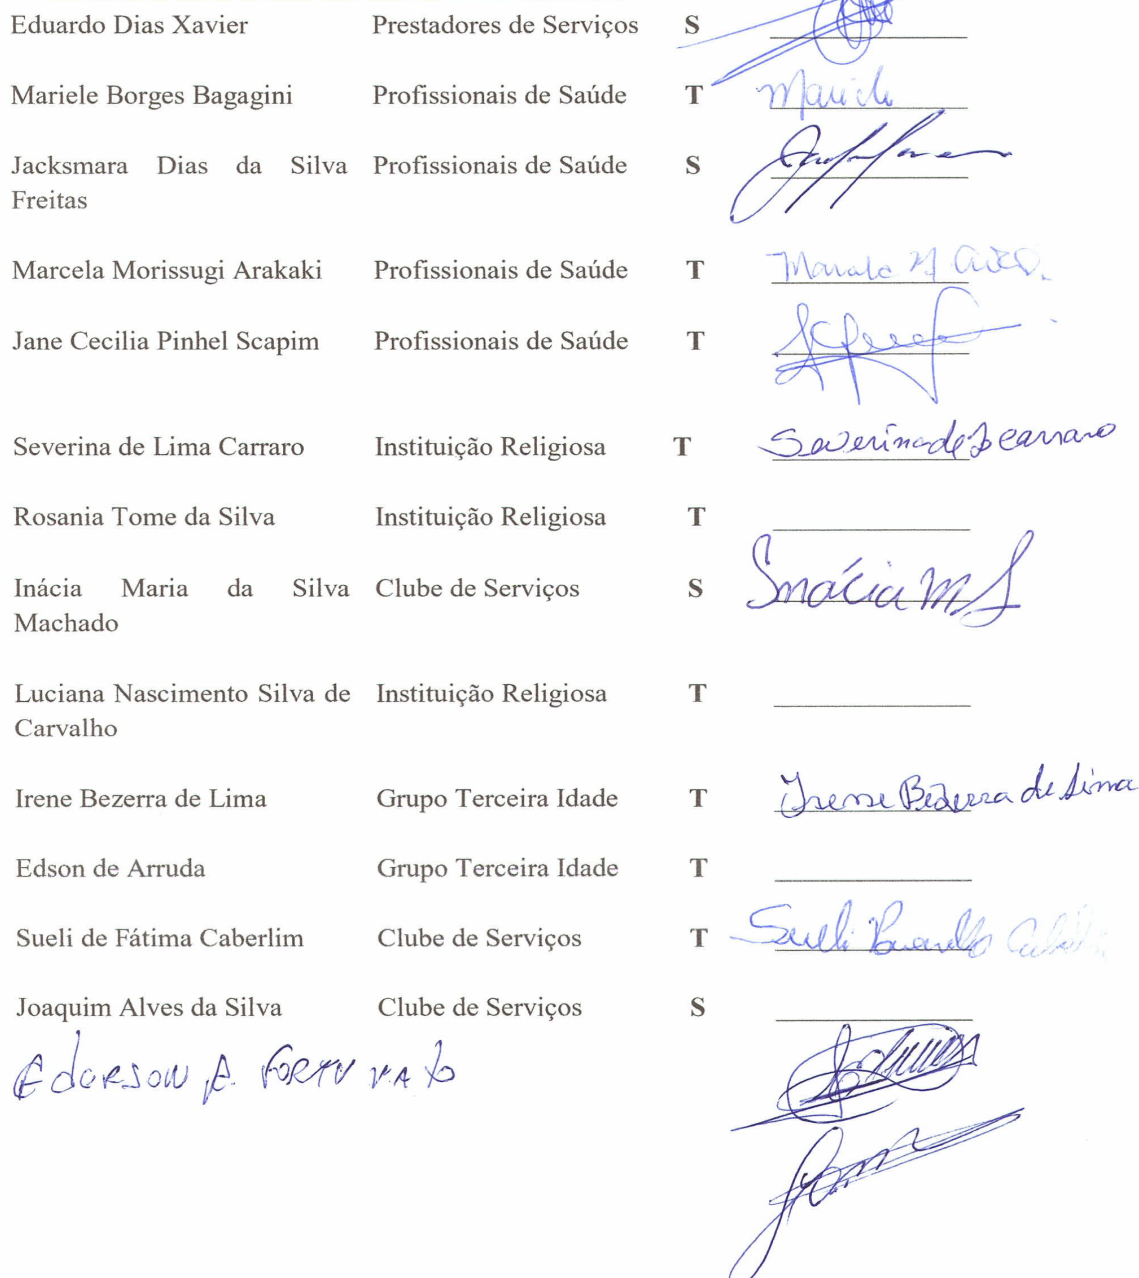 Eduardo Dias Xavier Prestadores de Serviços S
Mariele Borges Bagagini Profissionais de Saúde T
Jacksmara Dias da Silva Profissionais de Saúde S
Freitas
Marcela Morissugi Arakaki Profissionais de Saúde T
Jane Cecilia Pinhel Scapim Profissionais de Saúde T
Severina de Lima Carraro Instituição Religiosa T Severina de L Carraro
Rosania Tome da Silva Instituição Religiosa T
Inácia Maria da Silva Clube de Serviços S Inácia M S
Machado
Luciana Nascimento Silva de Instituição Religiosa T
Carvalho
Irene Bezerra de Lima Grupo Terceira Idade T Irene Bezerra de Lima
Edson de Arruda Grupo Terceira Idade T
Sueli de Fátima Caberlim Clube de Serviços T Sueli
Joaquim Alves da Silva Clube de Serviços S